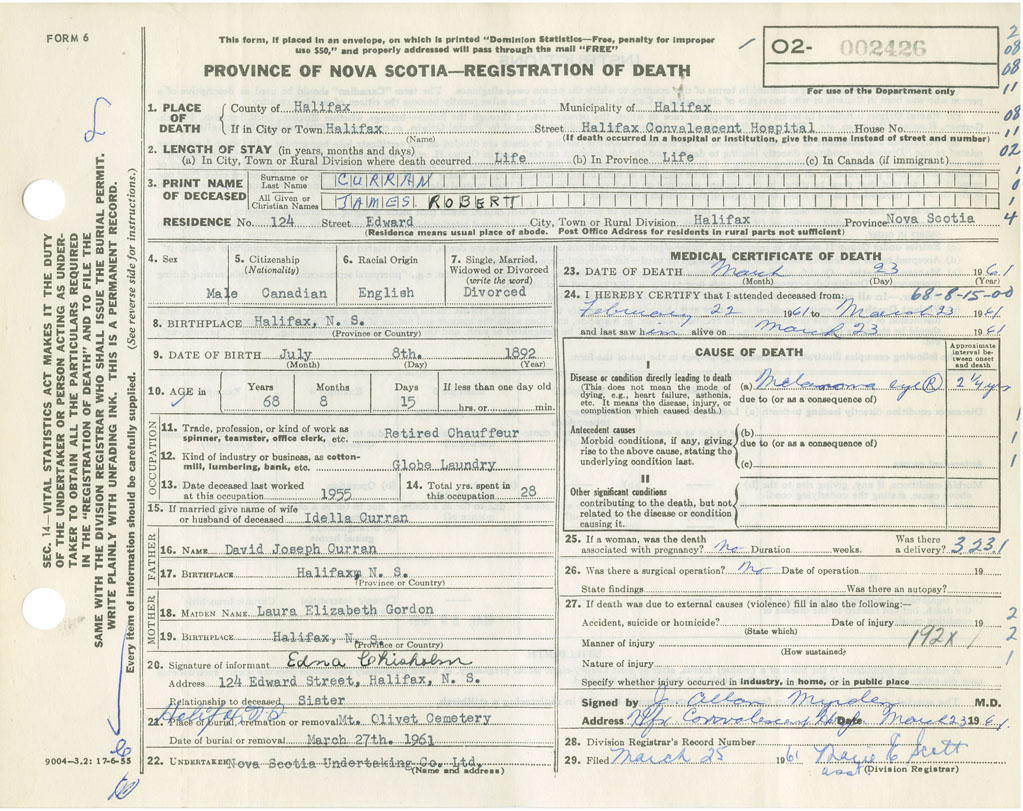 FORM 6
This form, if placed in an envelope, on which is printed "Dominion Statistics—Free, penalty for improper
use $50," and properly addressed will pass through the mail "FREE"
PROVINCE OF NOVA SCOTIA—REGISTRATION OF DEATH
02- 002426
For use of the Department only
2
08
08
11
08
11
02
1
0
4
SEC. 14—VITAL STATISTICS ACT MAKES IT THE DUTY
OF THE UNDERTAKER OR PERSON ACTING AS UNDER-
TAKER TO OBTAIN ALL THE PARTICULARS REQUIRED
IN THE "REGISTRATION OF DEATH" AND TO FILE THE
SAME WITH THE DIVISION REGISTRAR WHO SHALL ISSUE THE BURIAL PERMIT.
WRITE PLAINLY WITH UNFADING INK. THIS IS A PERMANENT RECORD.
Every item of information should be carefully supplied. (See reverse side for instructions.)
1. PLACE OF DEATH
County of Halifax Municipality of Halifax
If in City or Town Halifax Street Halifax Convalescent Hospital House No.
(Name) (If death occurred in a hospital or institution, give the name instead of street and number)
2. LENGTH OF STAY (in years, months and days)
(a) In City, Town or Rural Division where death occurred Life (b) In Province Life (c) In Canada (if immigrant)
3. PRINT NAME OF DECEASED
Surname or Last Name CURRAN
All Given or Christian Names JAMES ROBERT
RESIDENCE No. 124 Street Edward City, Town or Rural Division Halifax Province Nova Scotia
(Residence means usual place of abode. Post Office Address for residents in rural parts not sufficient)
4. Sex Male
5. Citizenship (Nationality) Canadian
6. Racial Origin English
7. Single, Married, Widowed or Divorced (write the word) Divorced
8. BIRTHPLACE Halifax, N. S.
(Province or Country)
9. DATE OF BIRTH July 8th. 1892
(Month) (Day) (Year)
10. AGE in Years 68 Months 8 Days 15 If less than one day old hrs. or min.
OCCUPATION
11. Trade, profession, or kind of work as spinner, teamster, office clerk, etc. Retired Chauffeur
12. Kind of industry or business, as cotton-mill, lumbering, bank, etc. Globe Laundry
13. Date deceased last worked at this occupation 1955
14. Total yrs. spent in this occupation 28
15. If married give name of wife or husband of deceased Idella Curran
FATHER
16. NAME David Joseph Curran
17. BIRTHPLACE Halifax, N. S.
(Province or Country)
MOTHER
18. MAIDEN NAME Laura Elizabeth Gordon
19. BIRTHPLACE Halifax, N. S.
(Province or Country)
20. Signature of informant Edna Chisholm
Address 124 Edward Street, Halifax, N. S.
Relationship to deceased Sister
21. Place of burial, cremation or removal Mt. Olivet Cemetery
Date of burial or removal March 27th. 1961
22. UNDERTAKER Nova Scotia Undertaking Co. Ltd.
(Name and address)
9004—3.2: 17-6-55
MEDICAL CERTIFICATE OF DEATH
23. DATE OF DEATH March 23 1961
(Month) (Day) (Year)
24. I HEREBY CERTIFY that I attended deceased from: 68-8-15-00
February 22 1961 to March 23 1961
and last saw him alive on March 23 1961
CAUSE OF DEATH
Approximate interval between onset and death
I
Disease or condition directly leading to death
(This does not mean the mode of dying, e.g., heart failure, asthenia, etc. It means the disease, injury, or complication which caused death.)
(a) Melanoma eye (R) 2 1/4 yrs
due to (or as a consequence of)
Antecedent causes
Morbid conditions, if any, giving rise to the above cause, stating the underlying condition last.
(b)
due to (or as a consequence of)
(c)
II
Other significant conditions
contributing to the death, but not related to the disease or condition causing it.
25. If a woman, was the death associated with pregnancy? No Duration weeks. Was there a delivery? 3231
26. Was there a surgical operation? No Date of operation 19
State findings Was there an autopsy?
27. If death was due to external causes (violence) fill in also the following:—
Accident, suicide or homicide? Date of injury 19
(State which)
Manner of injury 192x
(How sustained)
Nature of injury
Specify whether injury occurred in industry, in home, or in public place
Signed by J. Allan Myrden M.D.
Address Hfx Convalescent H Date March 23 1961
28. Division Registrar's Record Number
29. Filed March 25 1961 Marie E Scott
asst (Division Registrar)